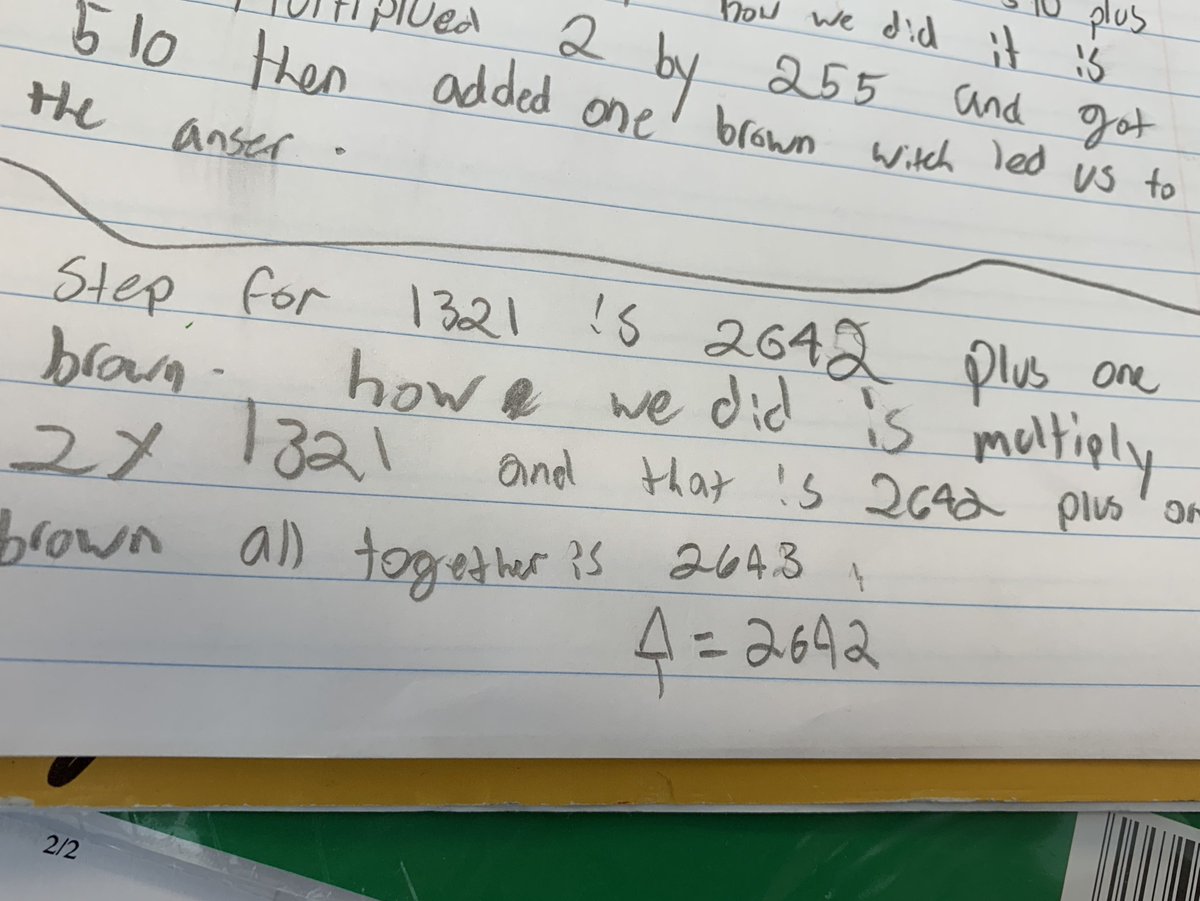 how we did it is
multiplued 2 by 255 and got
510 then added one brown witch led us to
the anser.
Step for 1321 is 2642 plus one
brown. how we did is multiply
2x 1321 and that is 2642 plus on
brown all together is 2643
= 2642
2/2